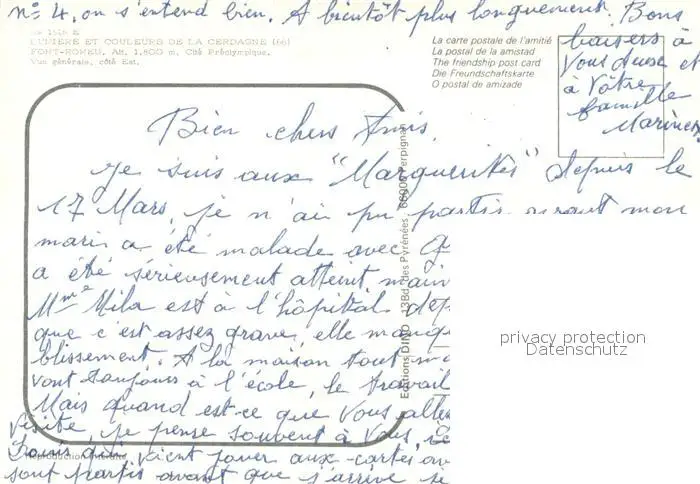 n° 4, on s'entend bien. A bientôt plus longuement. Bons
baisers à
vous deux et
à vôtre
famille
1518 E
LUMIERE ET COULEURS DE LA CERDAGNE (66)
FONT-ROMEU, Alt. 1.800 m, Cité Préolympique.
Vue générale, côté Est.
La carte postale de l'amitié
La postal de la amstad
The friendship post card
Die Freundschaftskarte
O postal de amizade
Bien chers Amis.
Je suis aux "Marguerites" depuis le
17 Mars, je n'ai pu partir avant mon
mari a été malade avec
a été sérieusement atteint main
Mme Mila est à l'hôpital dep
que c'est assez grave, elle manq
blissement. A la maison tout
vont toujours à l'école, le travail
Mais quand est-ce que vous alle
visite, je pense souvent à vous,
vient jouer aux cartes av
sont partis avant que j'arrive
Editions DINO - 13 Bd. des Pyrénées - 66000 Perpignan
Reproduction interdite
privacy protection
Datenschutz